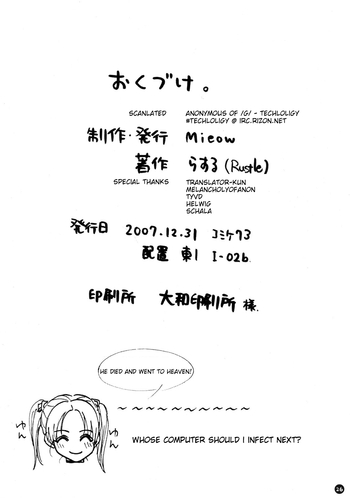 おくづけ。
SCANLATED ANONYMOUS OF /G/ - TECHLOLIGY
#TECHLOLIGY @ IRC.RIZON.NET
制作・発行 Mieow
著作 らする (Rustle)
SPECIAL THANKS TRANSLATOR-KUN
MELANCHOLYOFANON
TYVD
HELWIG
SCHALA
発行日 2007.12.31 コミケ73
配置 東1 I-02b
印刷所 大和印刷所 様.
HE DIED AND WENT TO HEAVEN!
〜〜〜〜〜〜〜〜〜〜
ゆん ゆん
WHOSE COMPUTER SHOULD I INFECT NEXT?
26